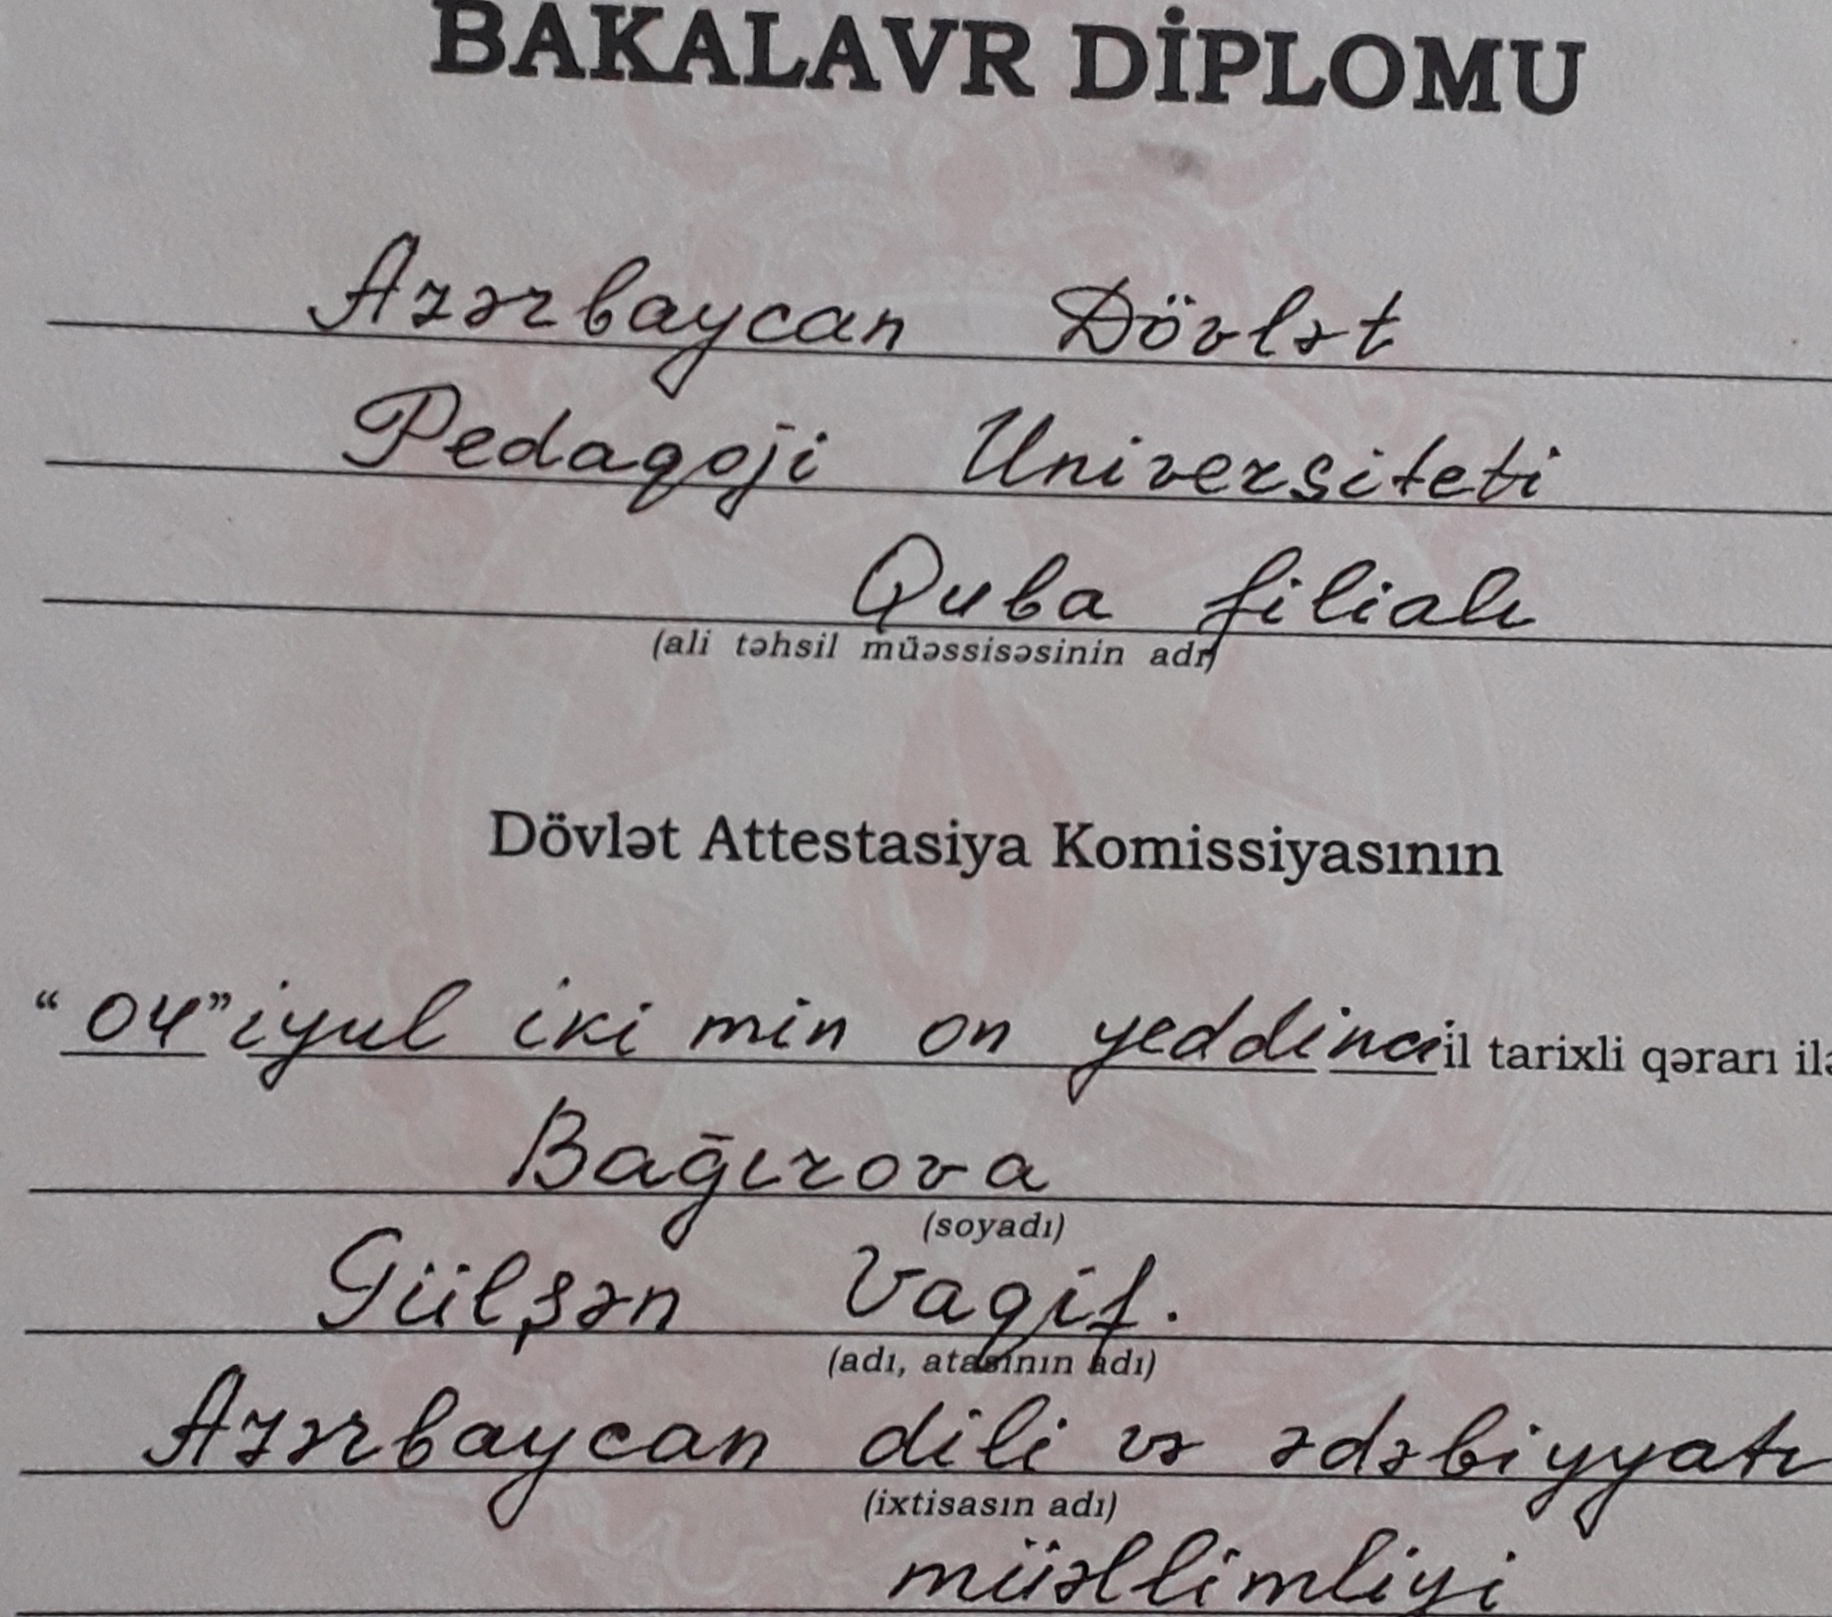 BAKALAVR DİPLOMU
Azərbaycan Dövlət
Pedaqoji Universiteti
Quba filialı
(ali təhsil müəssisəsinin adı)
Dövlət Attestasiya Komissiyasının
"04" iyul iki min on yeddinci il tarixli qərarı ilə
Bağırova
(soyadı)
Gülşən Vaqif.
(adı, atasının adı)
Azərbaycan dili və ədəbiyyatı
(ixtisasın adı)
müəllimliyi